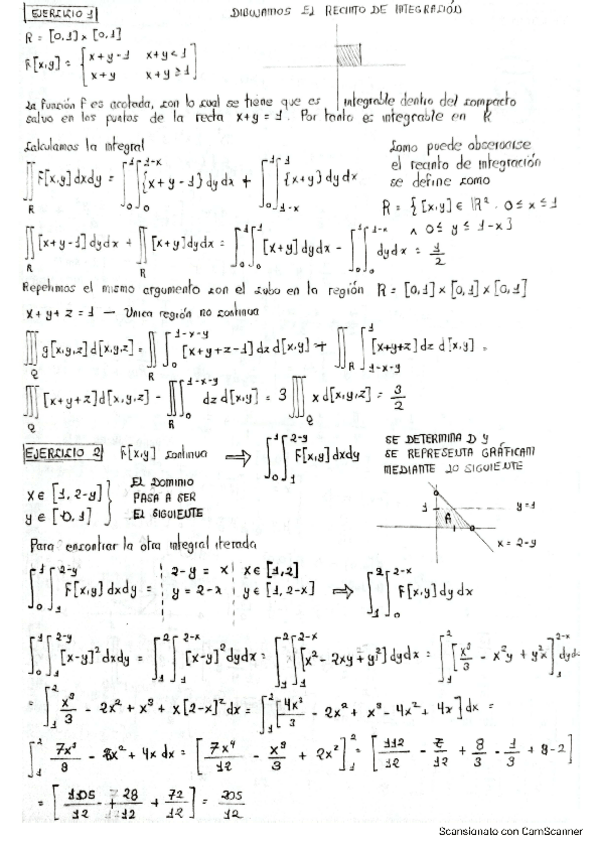 EJERCICIO 1
DIBUJAMOS EL RECINTO DE INTEGRACIÓN
R = [0,1] x [0,1]
F[x,y] = { x+y-1 x+y<1
x+y x+y≥1 }
La función F es acotada, con lo cual se tiene que es integrable dentro del compacto
salvo en los puntos de la recta x+y = 1. Por tanto es integrable en R
Calculamos la integral
Como puede observarse
el recinto de integración
se define como
∬_R F[x,y] dxdy = ∫_0^1 ∫_0^{1-x} {x+y-1} dydx + ∫_0^1 ∫_{1-x}^1 {x+y} dydx
R = {[x,y] ∈ ℝ². 0 ≤ x ≤ 1
∧ 0 ≤ y ≤ 1-x}
∬_R [x+y-1] dydx + ∬_R [x+y] dydx = ∫_0^1 ∫_0^1 [x+y] dydx - ∫_0^1 ∫_0^{1-x} dydx = 1/2
Repetimos el mismo argumento con el cubo en la región R = [0,1] x [0,1] x [0,1]
x+y+z = 1 — Unica región no continua
∭_Q g[x,y,z] d[x,y,z] = ∬_R ∫_0^{1-x-y} [x+y+z-1] dz d[x,y] + ∬_R ∫_{1-x-y}^1 [x+y+z] dz d[x,y] =
∭_Q [x+y+z] d[x,y,z] - ∬_R ∫_0^{1-x-y} dz d[x,y] = 3 ∭_Q x d[x,y,z] = 3/2
EJERCICIO 2 F[x,y] continua ⟹ ∫_0^1 ∫_1^{2-y} F[x,y] dxdy
SE DETERMINA D Y
SE REPRESENTA GRÁFICAM
MEDIANTE LO SIGUIENTE
x ∈ [1, 2-y]
y ∈ [0,1]
EL DOMINIO
PASA A SER
EL SIGUIENTE
1
A
y=1
x = 2-y
Para encontrar la otra integral iterada
∫_0^1 ∫_1^{2-y} F[x,y] dxdy = 2-y = x x ∈ [1,2]
y = 2-x y ∈ [1, 2-x] ⟹ ∫_1^2 ∫_0^{2-x} F[x,y] dydx
∫_0^1 ∫_1^{2-y} [x-y]² dxdy = ∫_1^2 ∫_0^{2-x} [x-y]² dydx = [x² - 2xy + y²] dydx =
= ∫_1^2 x³/3 - 2x² + x³ + x[2-x]² dx = ∫_1^2 [4x³/3 - 2x² + x³ - 4x² + 4x] dx =
= [105/12 + 28/12 + 72/12] = 205/12
Scansionato con CamScanner